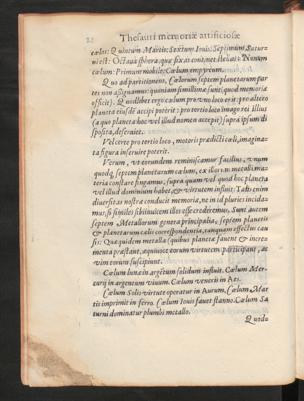 Thesauri memoriæ artificiosæ
cælũ: Quintum Martis: Sextum Iouis: Septimum Satur
ni est: Octaua sphæra, quæ fixas continet stellas: Nonum
cælum: Primum mobile: Cælum empyreum.
Quo ad partitionem, Cælorum septem planetarum par
tes non assignamus: quoniam simillimæ sunt (quod memoriæ
officit). Quodlibet ergo cælum pro vno loco erit: pro altero
planeta eiusdẽ accipi poterit: pro tertio loco imago rei illius
(a quo planeta hoc vel illud nomen accepit) supra ipsum di
sposita, deseruiet.
Vel certe pro tertio loco, motoris prædicti cæli, imagina
ta figura inseruire poterit.
Verum, vt eorundem reminiscamur facilius, vnum
quodq. septem planetarum cælum, ex illo r. u. metalli ma
teria constare fingamus, supra quam vel quod hoc planeta
vel illud dominium habet, & virtutem influit. Talis enim
diuersitas nostra conducit memoriæ, ne in id pluries incida-
mus, si similes similitudines illas esse crederemus. Sunt autem
septem Metallorum genera principalia, septem planetis
& planetarum cælis correspondentia, tanquam effectus cau
sis: Quæ quidem metalla (quibus planetæ fauent & incre-
menta præstant, aquibus eorum virtutem participant, ac
vim eorum suscipiunt.
Cælum lunæ in argẽtum solidum influit. Cælum Mer-
curij in argentum viuum. Cælum veneris in Aes.
Cælum Solis virtute operatur in Aurum. Cælum Mar
tis imprimit in ferro. Cælum Iouis fauet stanno. Cælum Sa
turni dominatur plumbi metallo.
Quodu